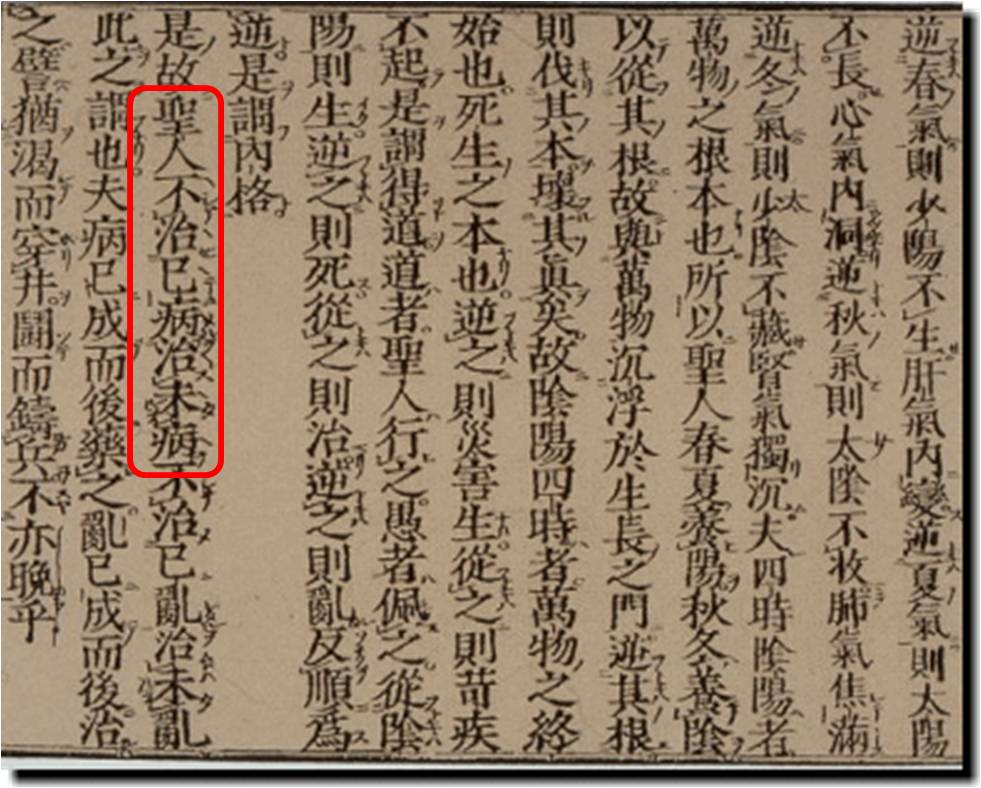 逆春氣則少陽不生肝氣內變逆夏氣則太陽
不長心氣內洞逆秋氣則太陰不收肺氣焦滿
逆冬氣則少陰不藏腎氣獨沉夫四時陰陽者
萬物之根本也所以聖人春夏養陽秋冬養陰
以從其根故與萬物沉浮於生長之門逆其根
則伐其本壞其眞矣故陰陽四時者萬物之終
始也死生之本也逆之則災害生從之則苛疾
不起是謂得道道者聖人行之愚者佩之從陰
陽則生逆之則死從之則治逆之則亂反順爲
逆是謂內格
是故聖人不治已病治未病不治已亂治未亂
此之謂也夫病已成而後藥之亂已成而後治
之譬猶渴而穿井鬪而鑄兵不亦晚乎